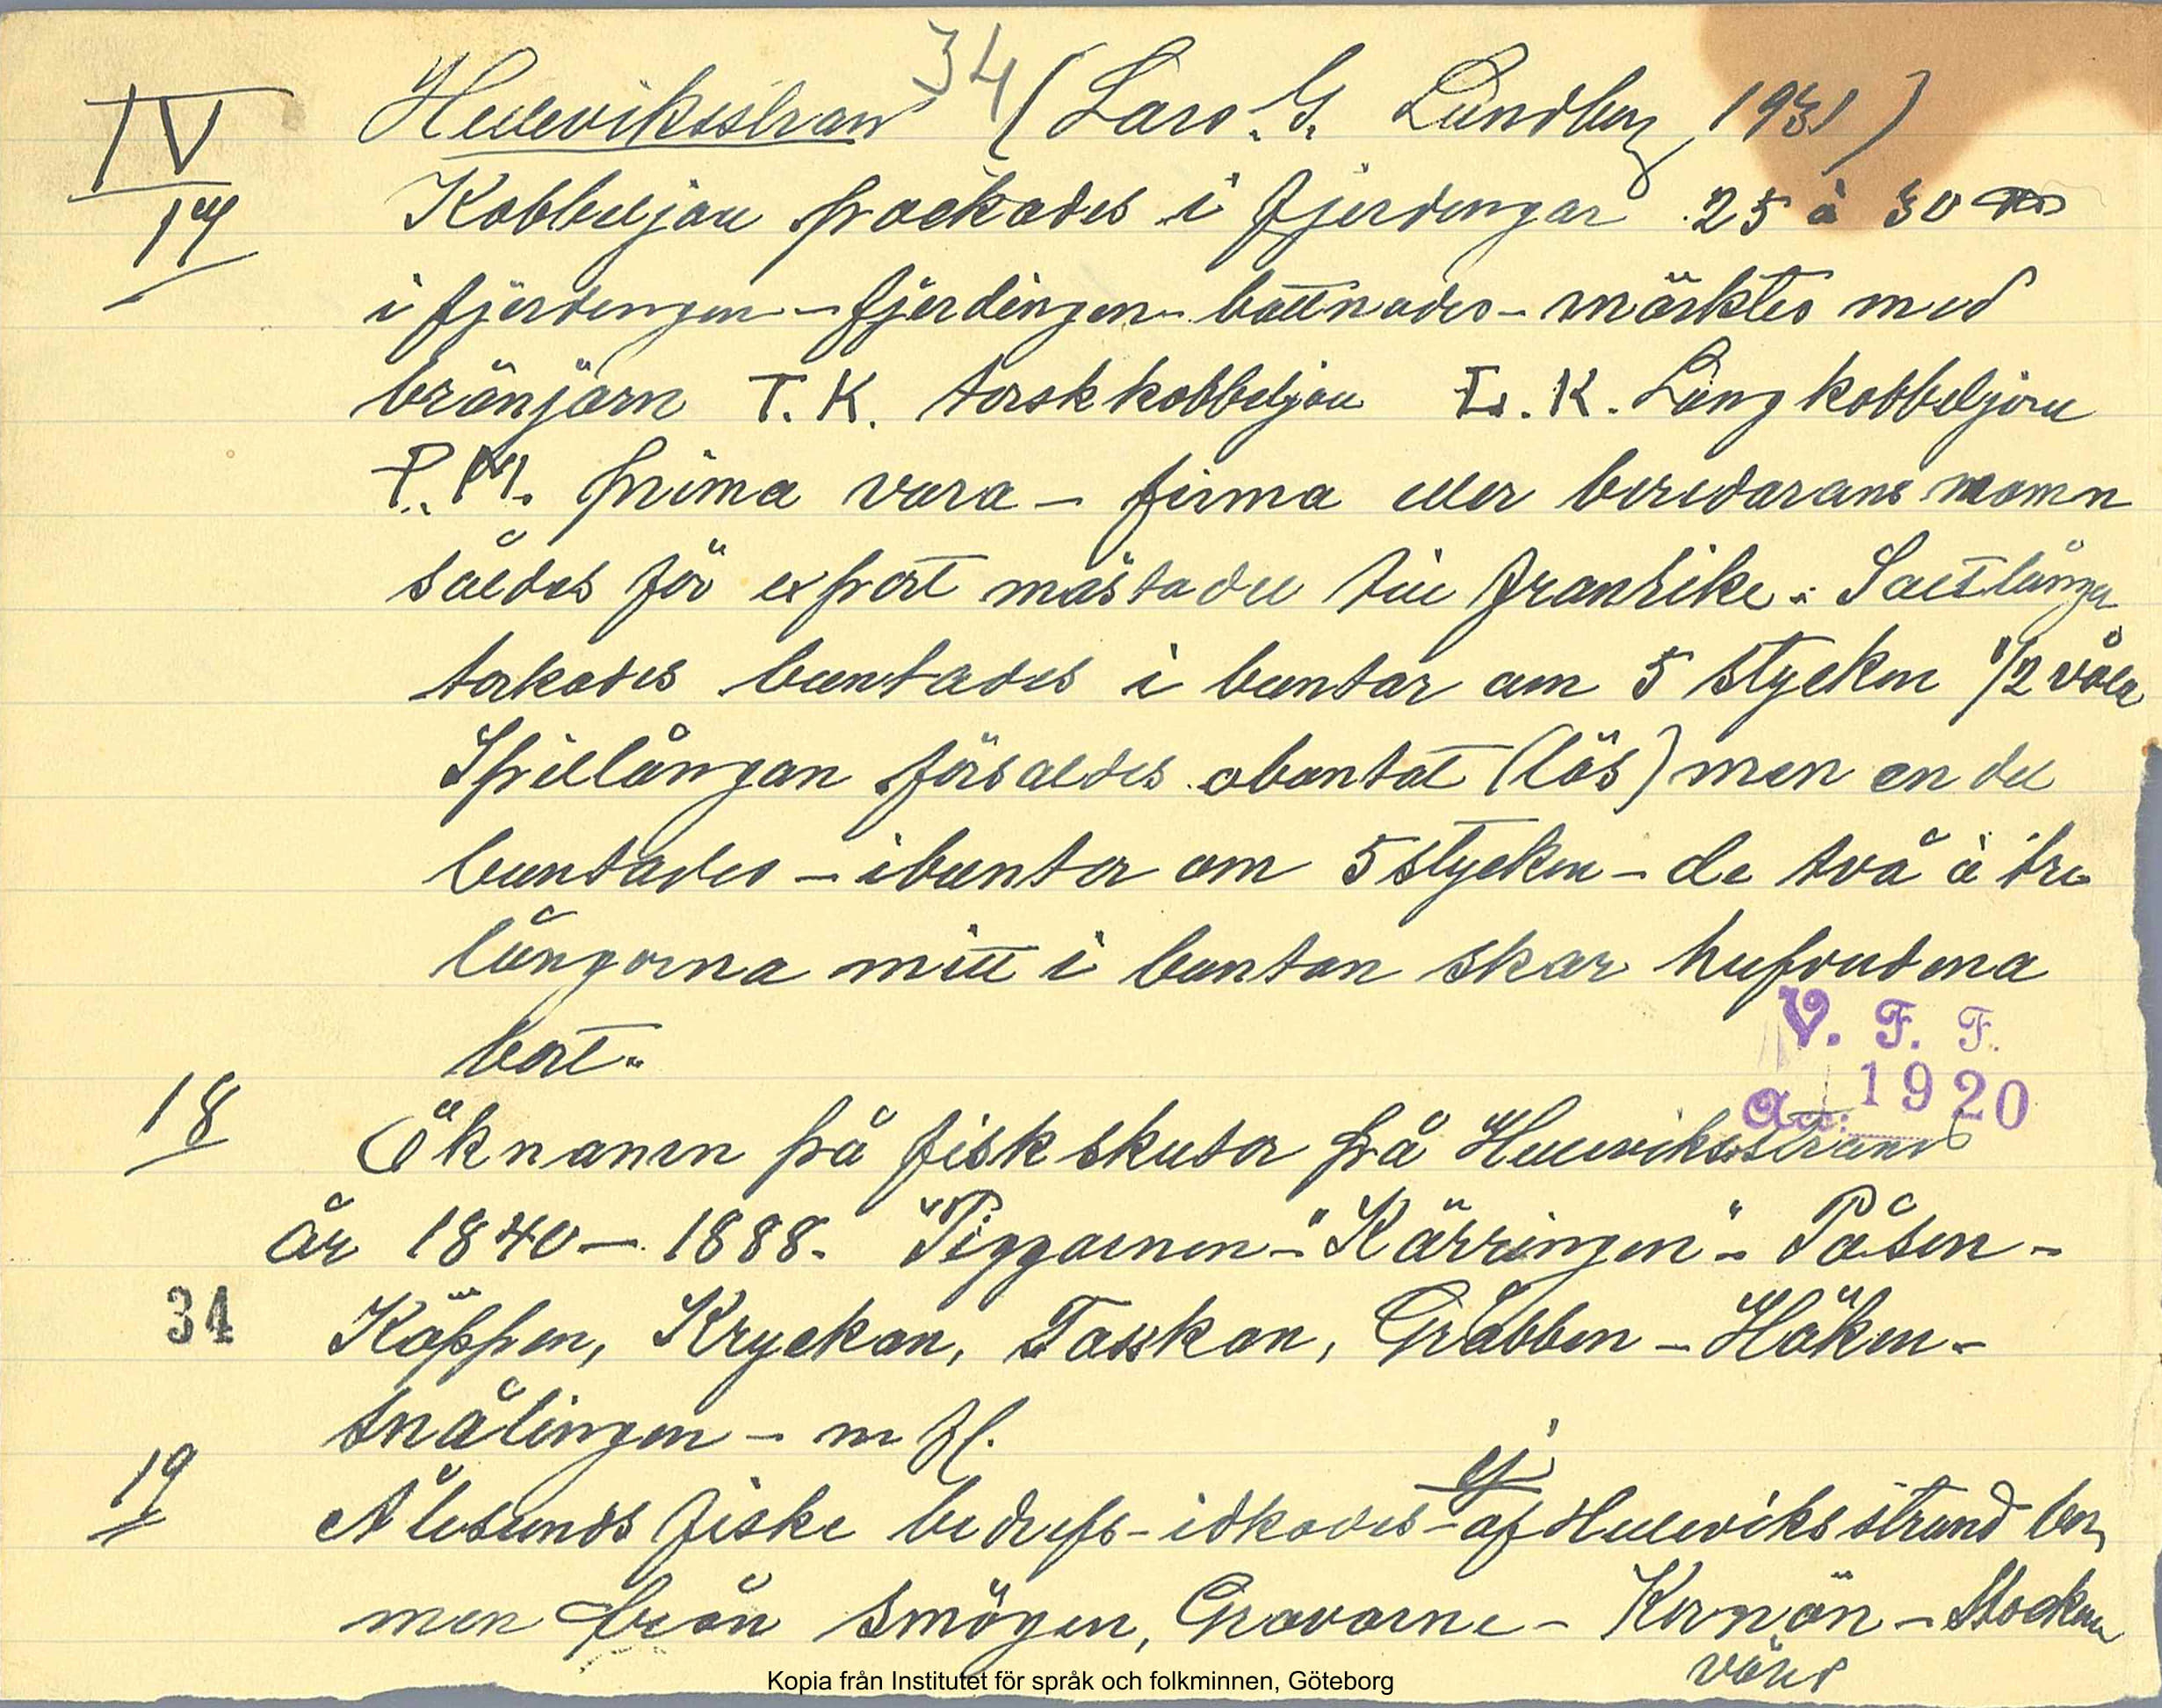 34
IV Hellevikstran (Lars. G. Lundberg 1931)
14 Kobbeljau packades i fjerdingar 25 à 30
i fjerdingen - fjerdingen bottnades - märktes med
bränjärn T. K. torskkobbeljau L. K. Långkobbeljau
P. M. prima vara - firma eller beredarans namn
såldes för export mästadel till Frankrike. Saltlånga
torkades buntades i buntar om 5 stycken 1/2 våla
Spillångan försåldes obuntat (lös) men en del
buntades - i buntar om 5 stycken - de två à tre
långorna mitt i buntan skar hufvudena
bort.
V. F. F.
1920
18 Öknamn på fiskskutor på Hellevikstrand
år 1840 - 1888. "Piggarnen - "Kärringen" - Påsen -
34 Käppen, Kryckan, Taskan, Grabben - Höken -
Snålingen - m fl.
ej
19 Ålesunds fiske bedrefs - idkades - af Helleviksstrand bor,
men från Smögen, Gravarne - Kornön - Stocken
Kopia från Institutet för språk och folkminnen, Göteborg